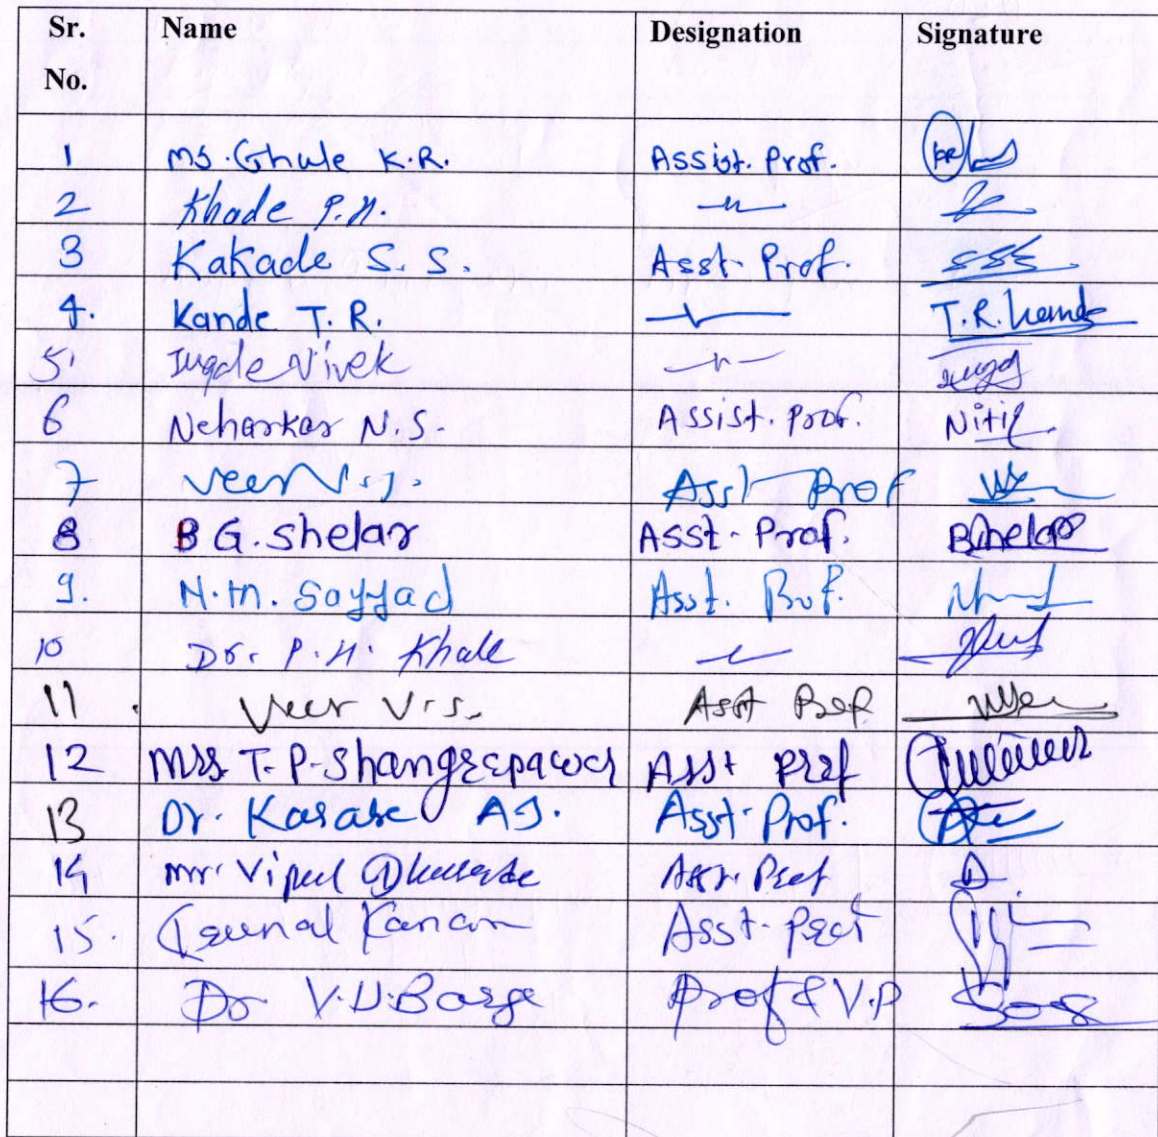 Sr. No. Name Designation Signature
1 Ms. Ghule K.R. Assist. Prof.
2 Khade P.H. —〃—
3 Kakade S. S. Asst. Prof. SSS
4. Kande T. R. —〃— T.R. Kande
5. Ingale Vivek —〃—
6 Neharkar N.S. Assist. Prof. Nitin
7 Veer V.S. Asst Prof
8 B G. Shelar Asst. Prof. BShelar
9. N.M. Sayyad Asst. Prof.
10 Dr. P. H. Khade —〃—
11. Veer V.S. Asst Prof
12 Mrs. T. P. Asst Prof
13 Dr. Karale A.S. Asst. Prof.
14 Mr. Vipul Asst. Prof
15. Asst. Prof
16. Dr V.U. Barge Prof & V.P